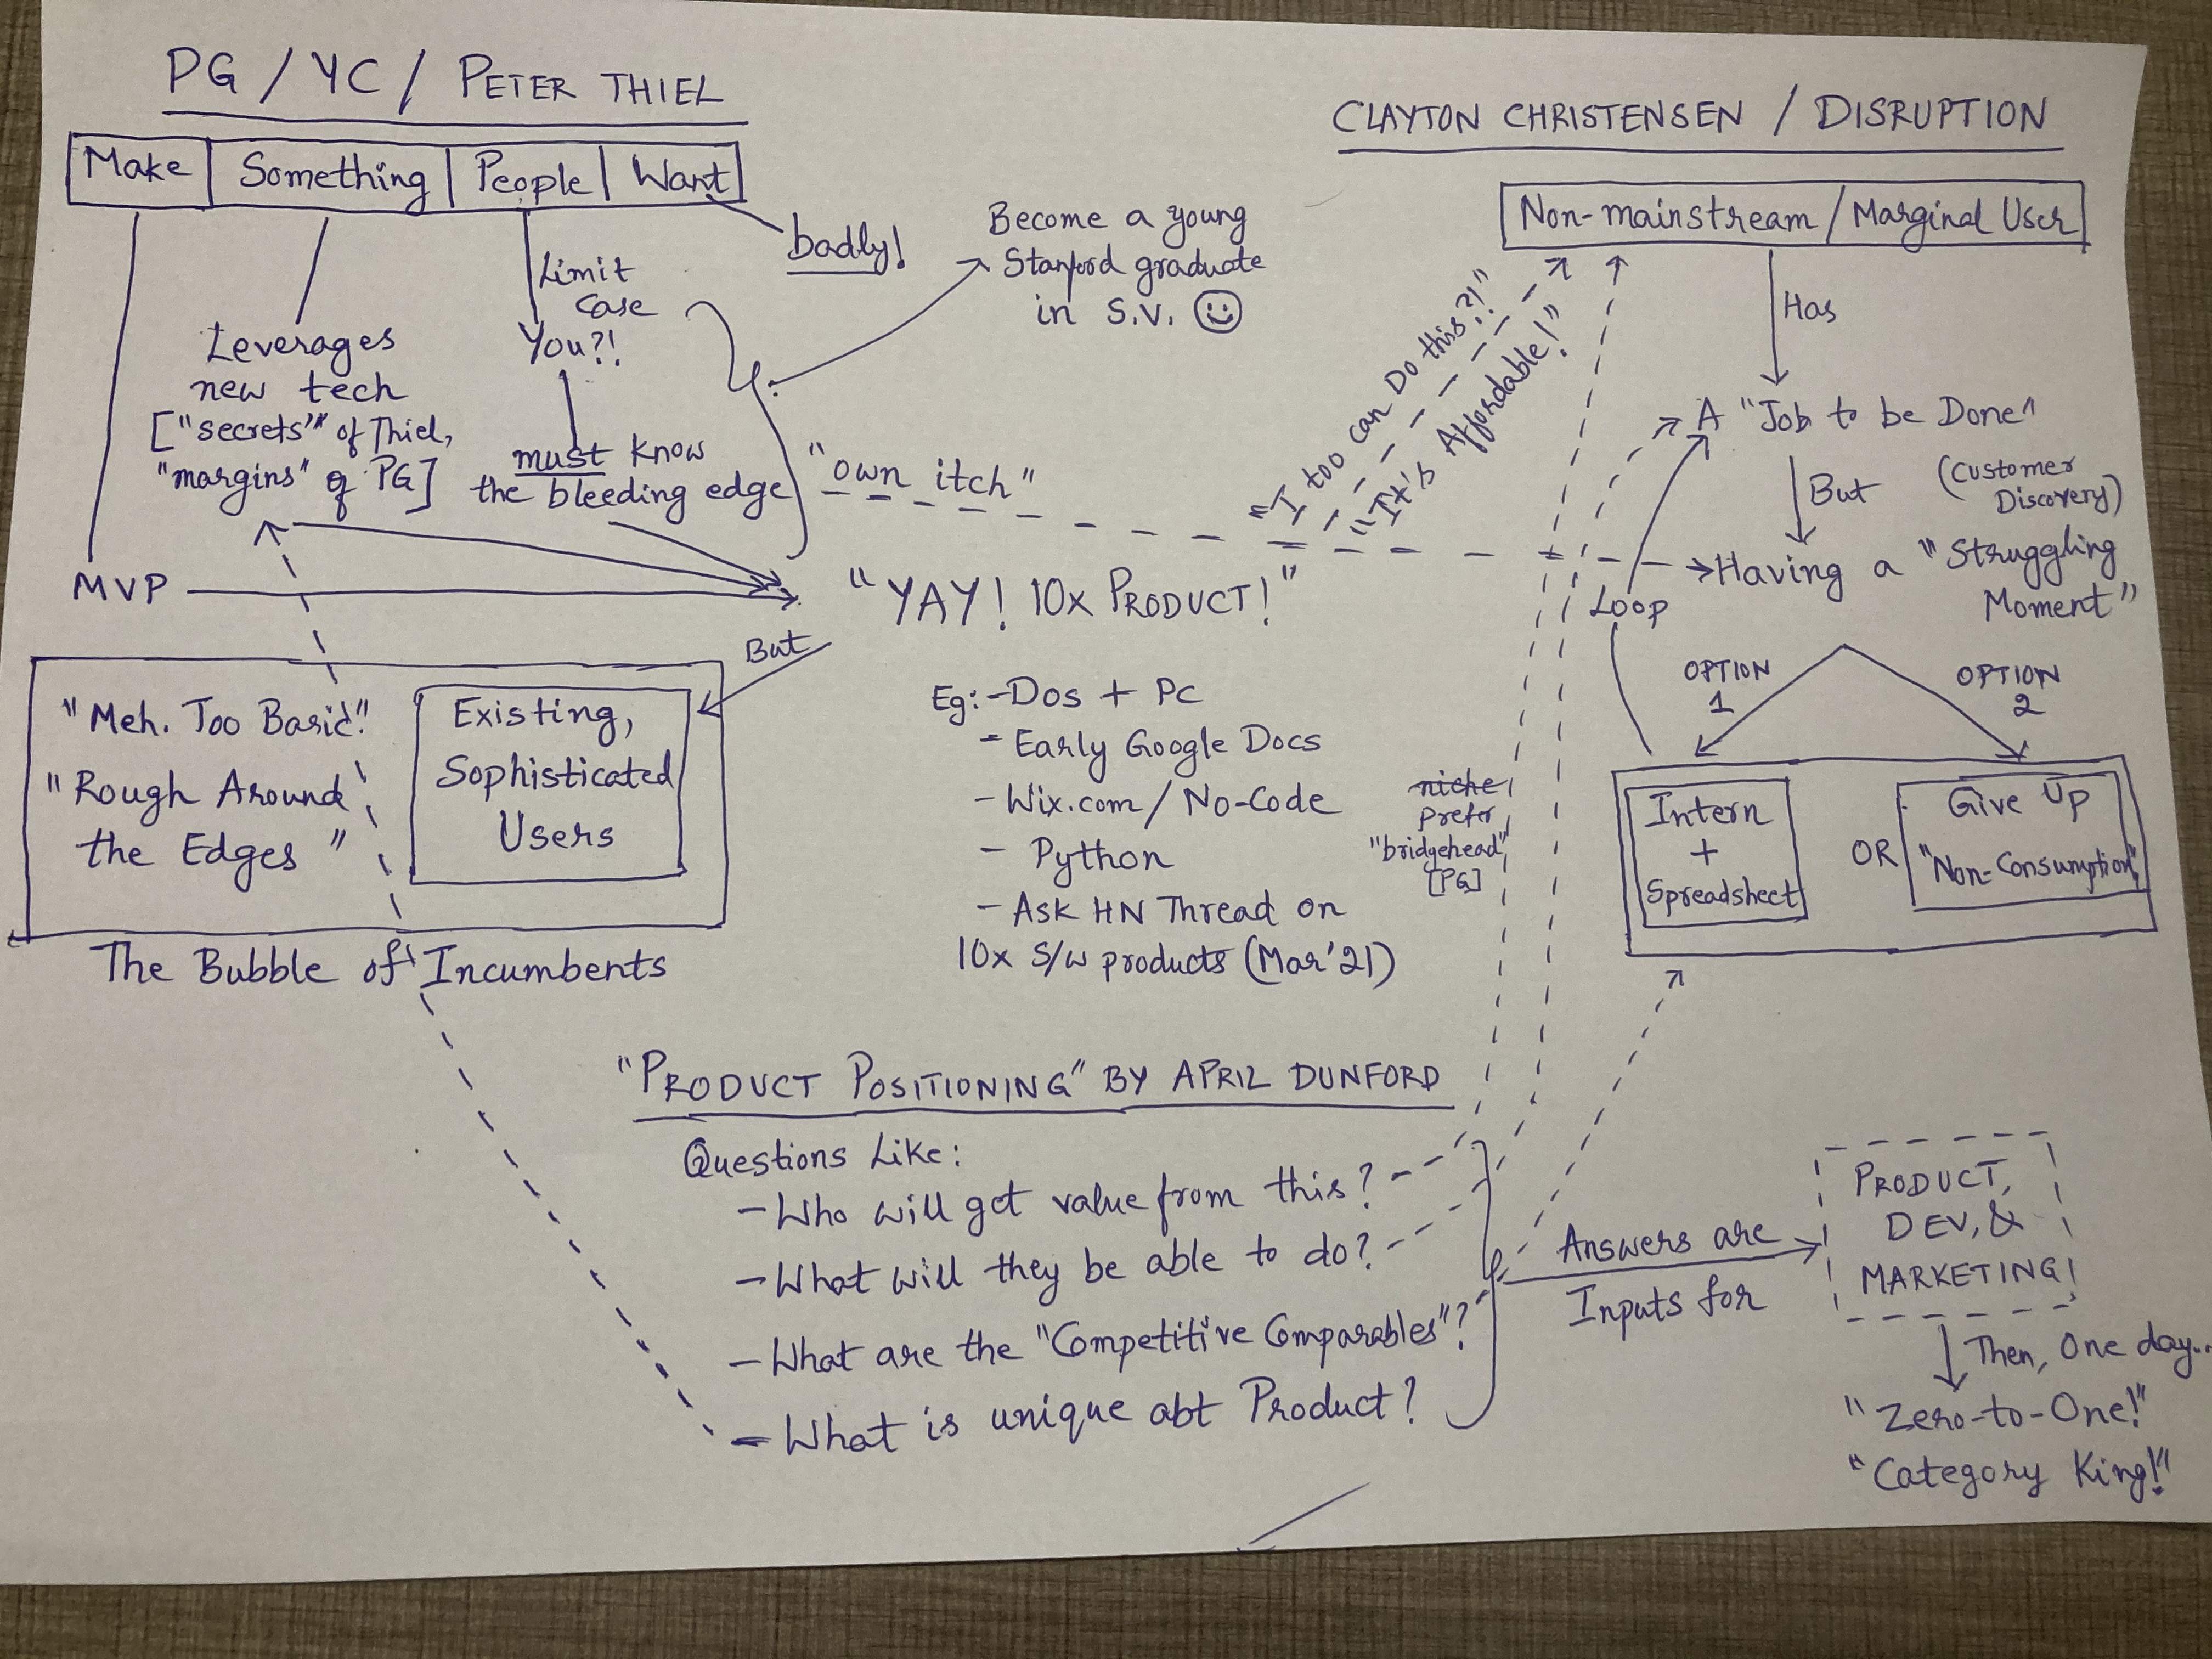 PG / YC / PETER THIEL
Make Something People Want
badly!
Limit
Case
You?!
must know
the bleeding edge
Leverages
new tech
["secrets" of Thiel,
"margins" of PG]
MVP
Become a young
Stanford graduate
in S.V.
"own itch"
"YAY! 10x PRODUCT!"
But
Existing,
Sophisticated
Users
"Meh. Too Basic."
"Rough Around
the Edges"
The Bubble of Incumbents
Eg:- Dos + PC
- Early Google Docs
- Wix.com / No-Code
- Python
- Ask HN Thread on
10x S/w products (Mar'21)
CLAYTON CHRISTENSEN / DISRUPTION
Non-mainstream / Marginal User
"I too can Do this?!"
"It's Affordable!"
Has
A "Job to be Done"
But
(Customer
Discovery)
Having a "Struggling
Moment"
Loop
OPTION
1
OPTION
2
Intern
+
Spreadsheet
OR
Give Up
"Non-Consumption"
niche
prefer
"bridgehead"
[PG]
"PRODUCT POSITIONING" BY APRIL DUNFORD
Questions Like:
- Who will get value from this?
- What will they be able to do?
- What are the "Competitive Comparables"?
- What is unique abt Product?
Answers are
Inputs for
PRODUCT,
DEV, &
MARKETING!
Then, One day...
"Zero-to-One!"
"Category King!"